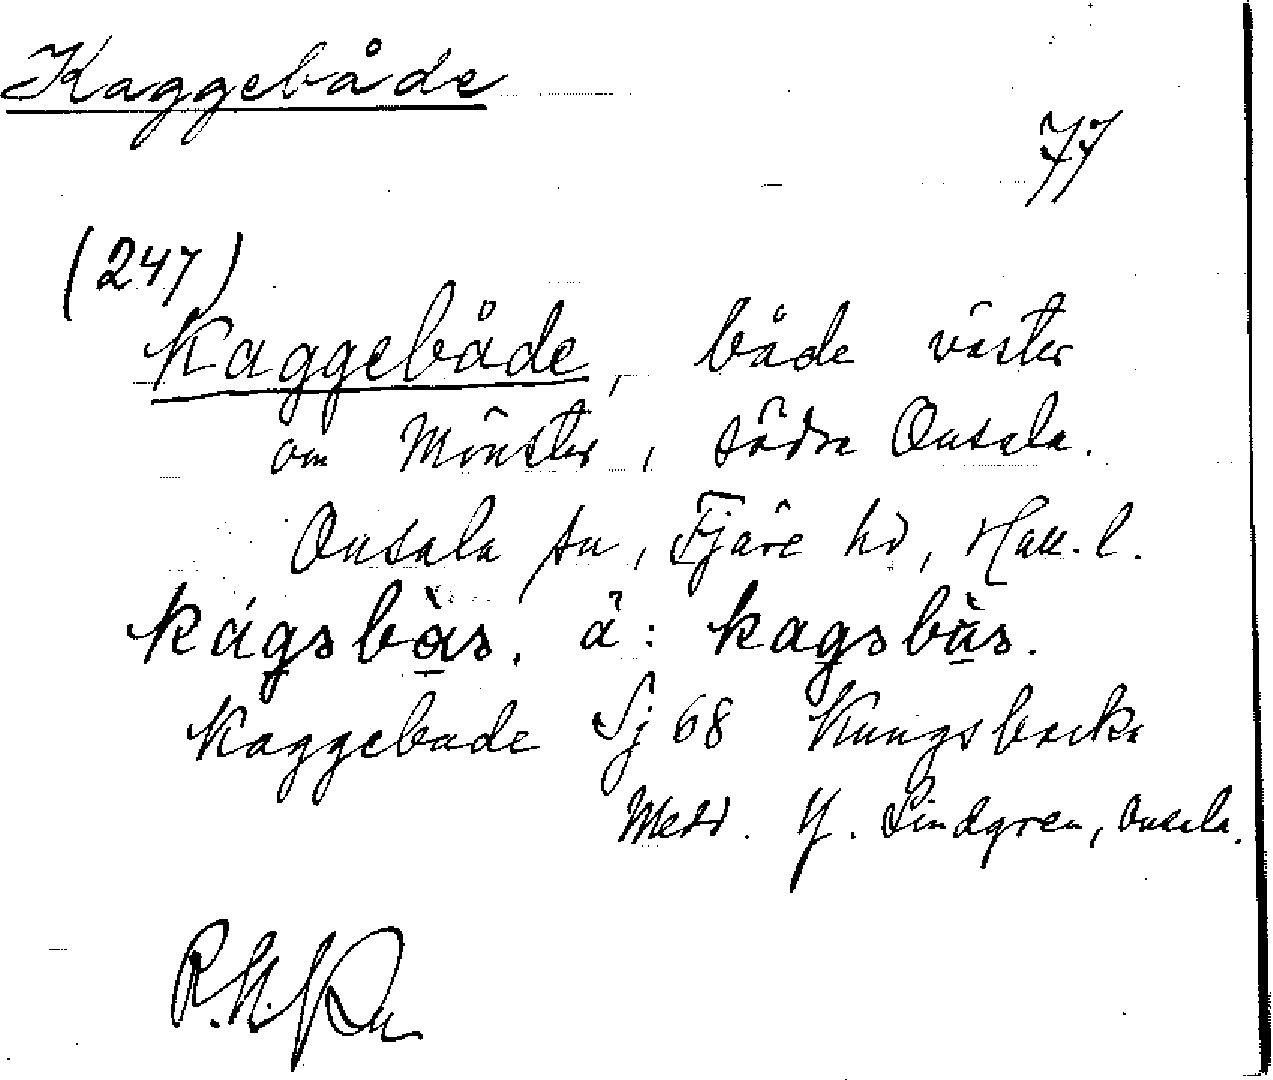 Kaggebåde
77
(247)
Kaggebåde, både väster
om Mönster, södra Onsala.
Onsala sn, Fjäre hd, Hall. l.
kagsbås. å: kagsbås.
Kaggebade Sj 68 Kungsbacka
Medd. Y. Lindgren, Onsala.